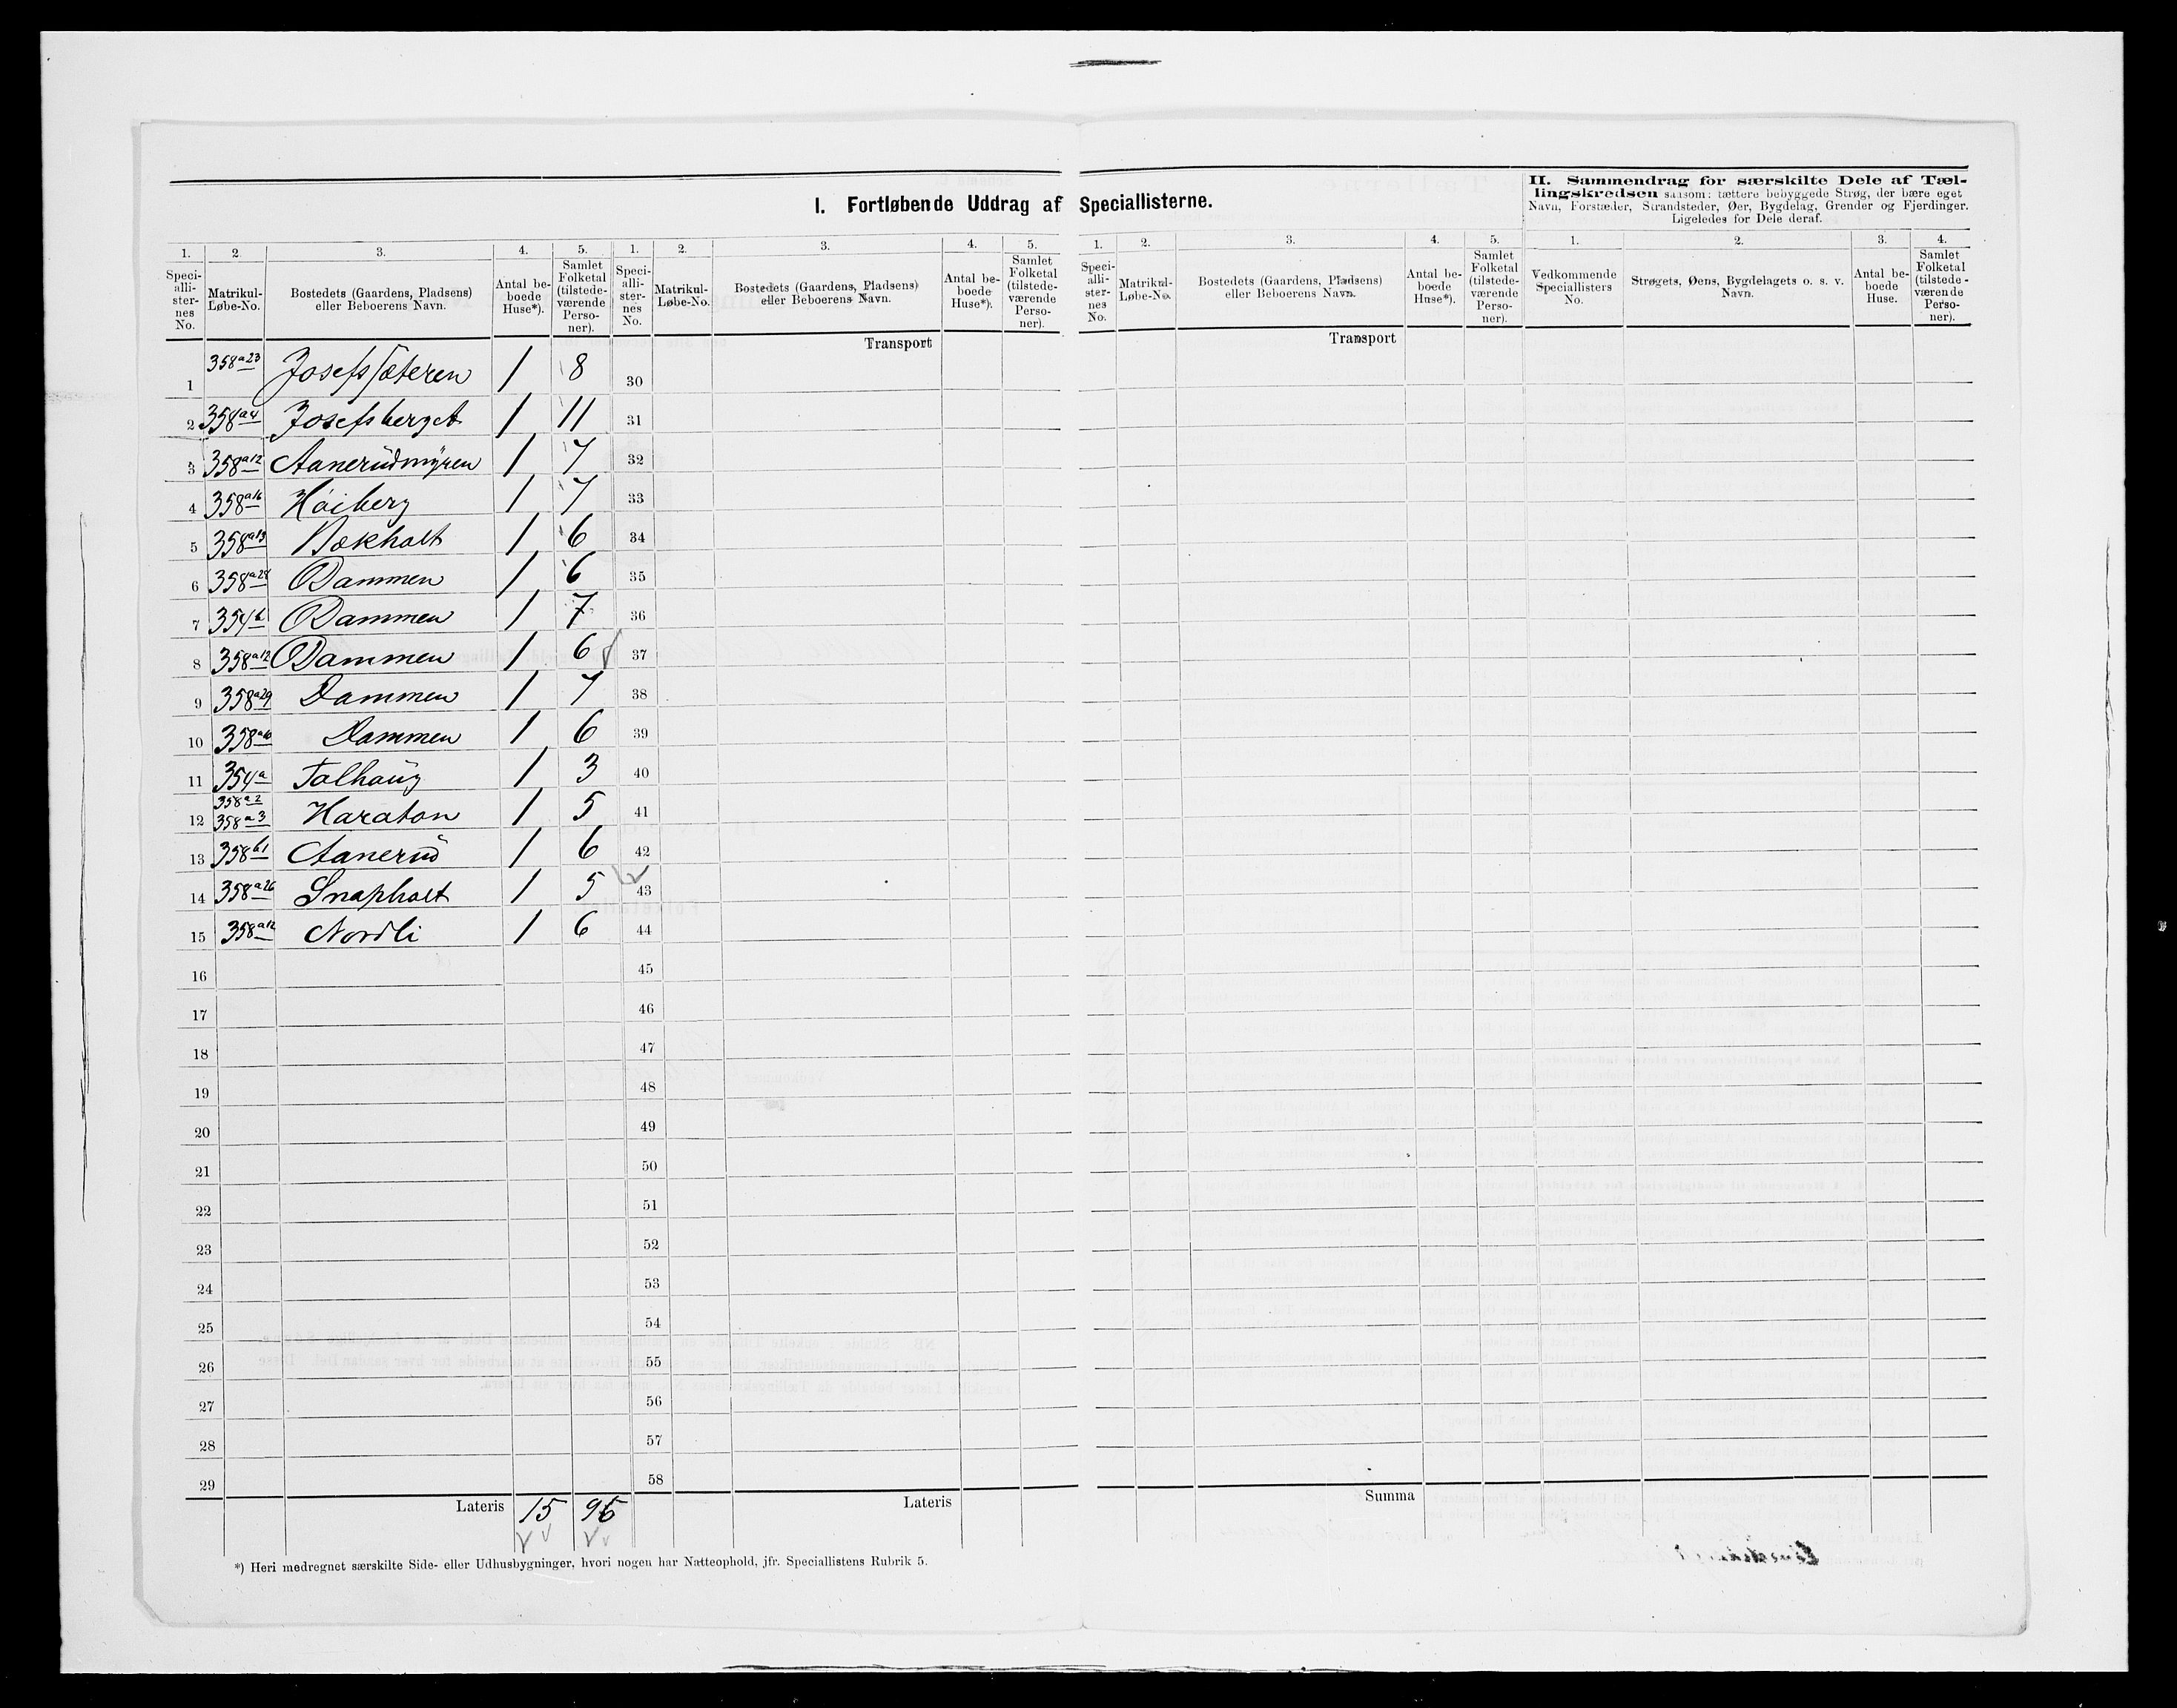 I. Fortløbende Uddrag af Speciallisterne.
II. Sammendrag for særskilte Dele af Tæl-
lingskredsen saasom: tættere bebyggede Strøg, der bære eget
Navn, Forstæder, Strandsteder, Øer, Bygdelag, Grender og Fjerdinger.
Ligeledes for Dele deraf.
1. 2. 3. 4. 5. 1. 2. 3. 4. 5. 1. 2. 3. 4. 5. 1. 2. 3. 4.
Speci-alli-ster-nes No. Matrikul-Løbe-No. Bostedets (Gaardens, Pladsens) eller Beboerens Navn. Antal be-boede Huse*). Samlet Folketal (tilstede-værende Perso-ner).
Speci-alli-ster-nes No. Matrikul-Løbe-No. Bostedets (Gaardens, Pladsens) eller Beboerens Navn. Antal be-boede Huse*). Samlet Folketal (tilstede-værende Perso-ner).
Speci-alli-ster-nes No. Matrikul-Løbe-No. Bostedets (Gaardens, Pladsens) eller Beboerens Navn. Antal be-boede Huse*). Samlet Folketal (tilstede-værende Perso-ner).
Vedkommende Speciallisters No. Strøgets, Øens, Bygdelagets o. s. v. Navn. Antal be-boede Huse. Samlet Folketal (tilstede-værende Perso-ner).
Transport Transport
1 358a23 Josefssæteren 1 8 30
2 358a4 Josefsberget 1 11 31
3 358a12 Aanerudmyren 1 7 32
4 358a16 Høiberg 1 7 33
5 358a13 Bækholt 1 6 34
6 358a28 Dammen 1 6 35
7 354b Dammen 1 7 36
8 358a12 Dammen 1 6 37
9 358a29 Dammen 1 7 38
10 358a10 Dammen 1 6 39
11 354a Talhaug 1 3 40
12 358a2 358a3 Haraton 1 5 41
13 358b1 Aanerud 1 6 42
14 358a26 Snapholt 1 5 43
15 358a12 Nordli 1 6 44
16 45
17 46
18 47
19 48
20 49
21 50
22 51
23 52
24 53
25 54
26 55
27 56
28 57
29 58
Lateris 15 96 Lateris Summa
*) Heri medregnet særskilte Side- eller Udhusbygninger, hvori nogen har Natteophold, jfr. Speciallistens Rubrik 5.